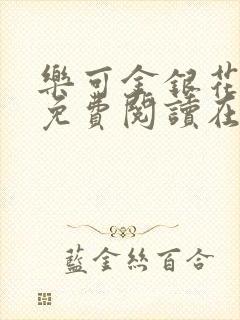 樂可金銀花
免費閱讀在
藍金絲百合